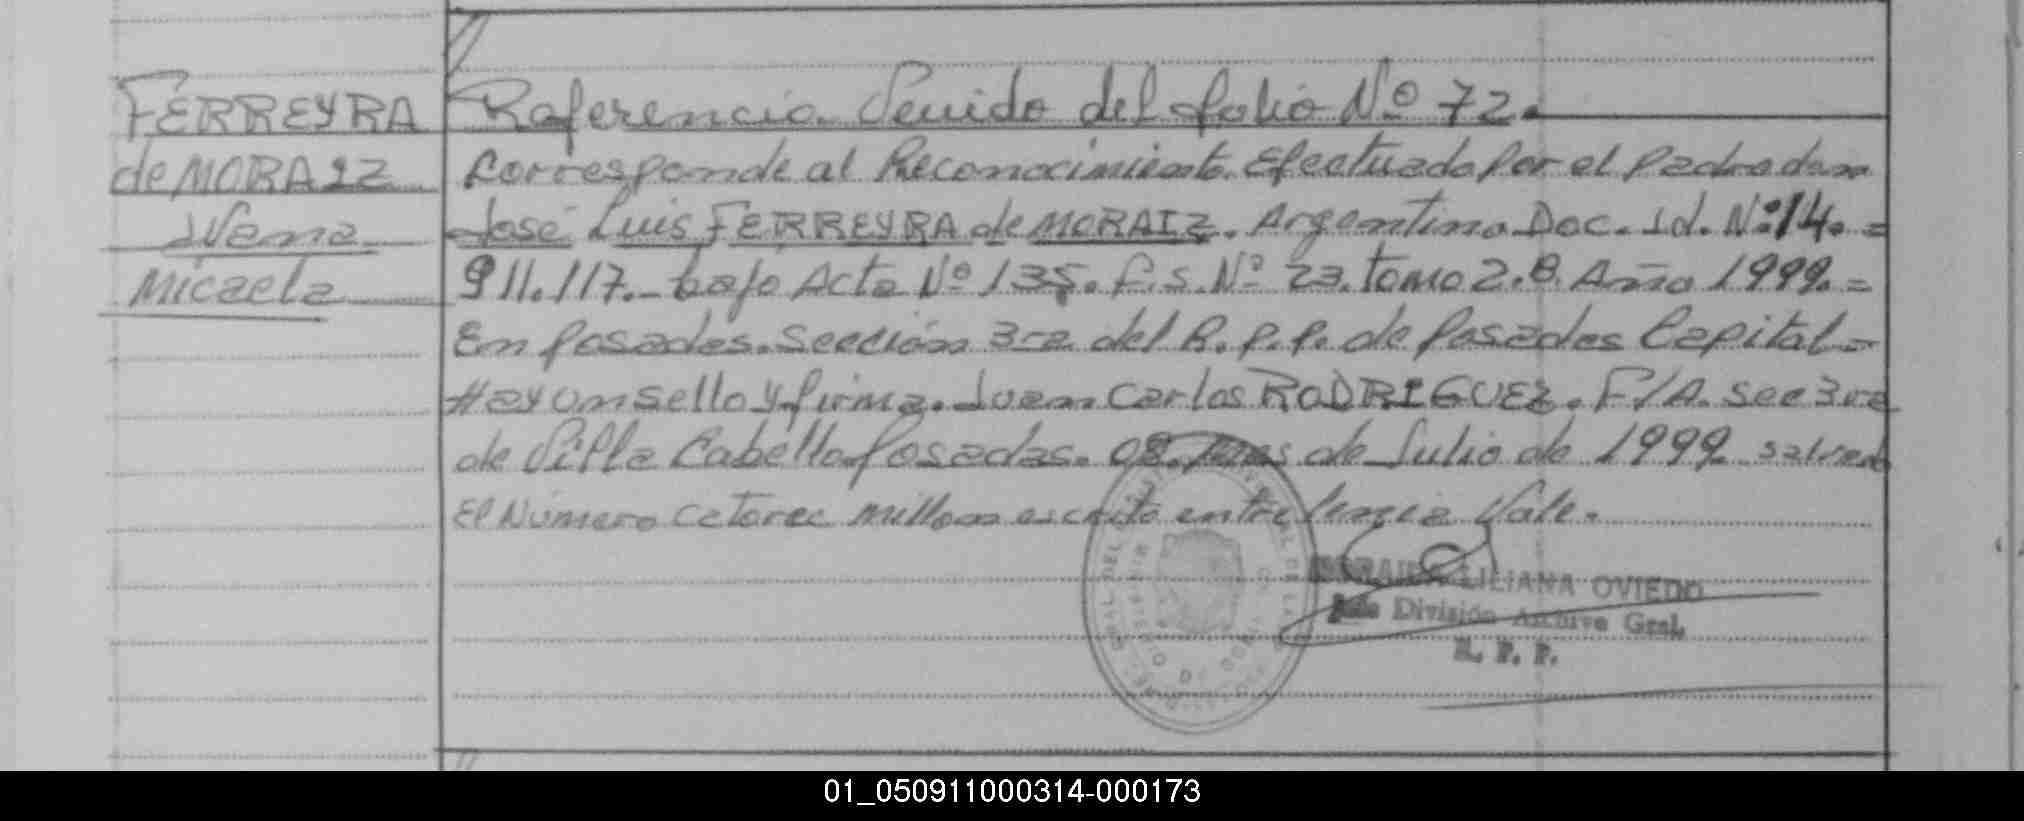 FERREYRA
de MORAIZ
Micaela
Referencia Venido del folio Nº 72.
Corresponde al Reconocimiento Efectuado Por el Padre don
José Luis FERREYRA de MORAIZ. Argentino Doc. Id. Nº 14. =
911.117._ bajo Acta Nº 135. F.S. Nº 23. tomo 2.B. Año 1999. =
En Posadas. Sección 3ra del R.P.P. de Posadas Capital =
Hay un sello y firma. Juan Carlos RODRIGUEZ. F/A. Sec 3ra
de Villa Cabello Posadas. 08 de Julio de 1999 salvado
El Número Catorce millon escrito entre Vale.
LILIANA OVIEDO
División Archivo Gral.
R. P. P.
01_050911000314-000173